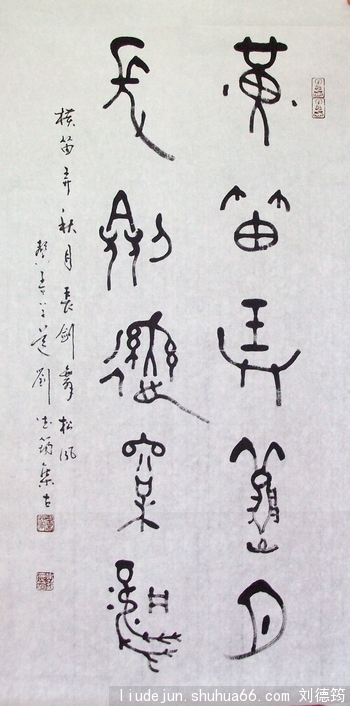 横笛弄秋月
長劍舞松風
横笛弄秋月長劍舞松風
劉德筠集古
liudejun.shuhua66.com/刘德筠